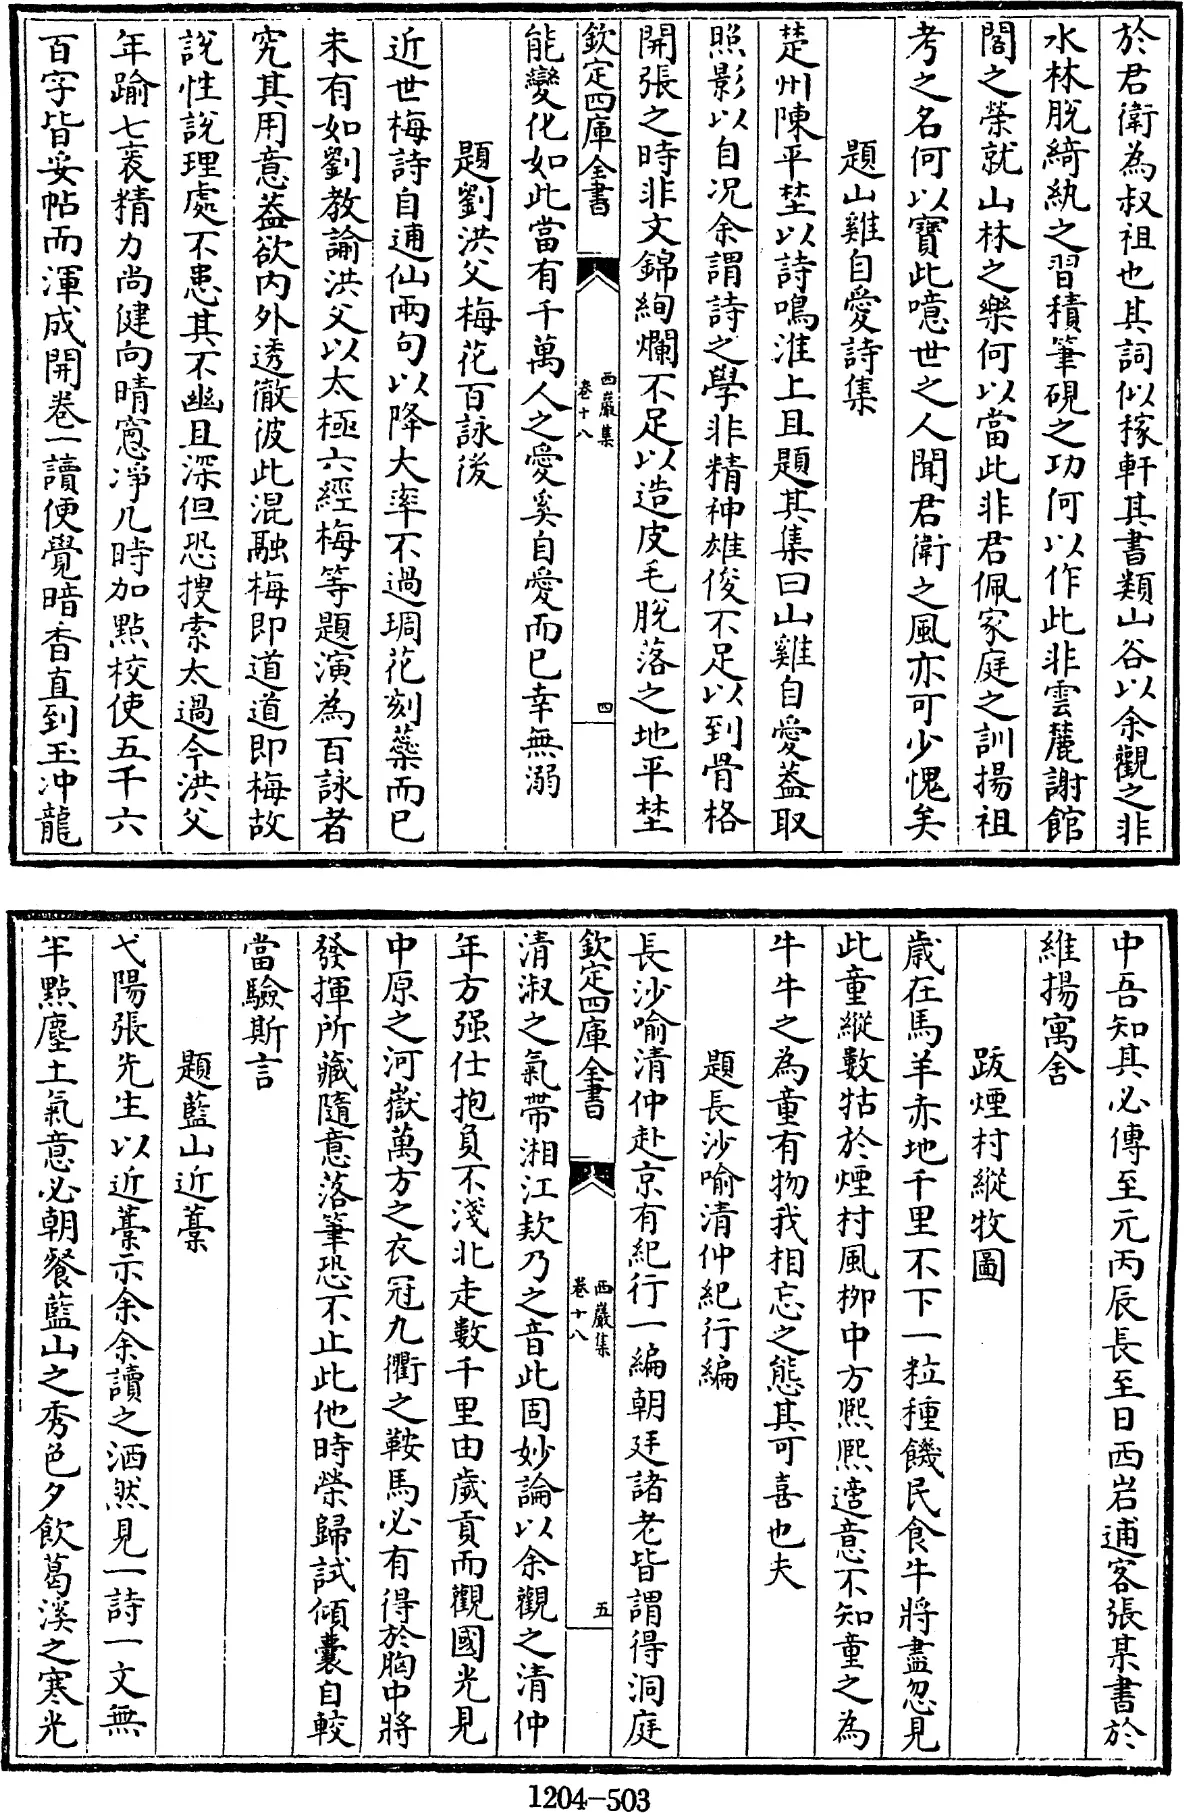 於君衛為叔祖也其詞似稼軒其書類山谷以余觀之非
水林脫綺紈之習積筆硯之功何以作此非雲麓謝館
閣之榮就山林之樂何以當此非君佩家庭之訓揚祖
考之名何以寶此噫世之人聞君衛之風亦可少愧矣
題山雞自愛詩集
楚州陳平埜以詩鳴淮上且題其集曰山雞自愛葢取
照影以自况余謂詩之學非精神雄俊不足以到骨格
開張之時非文錦絢爛不足以造皮毛脫落之地平埜
欽定四庫全書
西巖集
卷十八
四
能變化如此當有千萬人之愛奚自愛而已幸無溺
題劉洪父梅花百詠後
近世梅詩自逋仙兩句以降大率不過琱花刻蘂而已
未有如劉教諭洪父以太極六經梅等題演為百詠者
究其用意葢欲內外透徹彼此混融梅即道道即梅故
說性說理處不患其不幽且深但恐搜索太過今洪父
年踰七袠精力尚健向晴窻凈几時加點校使五千六
百字皆妥帖而渾成開卷一讀便覺暗香直到玉冲龍
中吾知其必傳至元丙辰長至日西岩逋客張某書於
維揚寓舍
跋煙村縱牧圖
歲在馬羊赤地千里不下一粒種饑民食牛將盡忽見
此童縱數牯於煙村風栁中方熈熈適意不知童之為
牛牛之為童有物我相忘之態其可喜也夫
題長沙喻清仲紀行編
長沙喻清仲赴京有紀行一編朝廷諸老皆謂得洞庭
欽定四庫全書
西巖集
卷十八
五
清淑之氣帶湘江欸乃之音此固妙論以余觀之清仲
年方强仕抱負不淺北走數千里由歲貢而觀國光見
中原之河嶽萬方之衣冠九衢之鞍馬必有得於胸中將
發揮所藏隨意落筆恐不止此他時榮歸試傾囊自較
當驗斯言
題藍山近藁
弋陽張先生以近藁示余余讀之洒然見一詩一文無
半點塵土氣意必朝餐藍山之秀色夕飲葛溪之寒光
1204-503